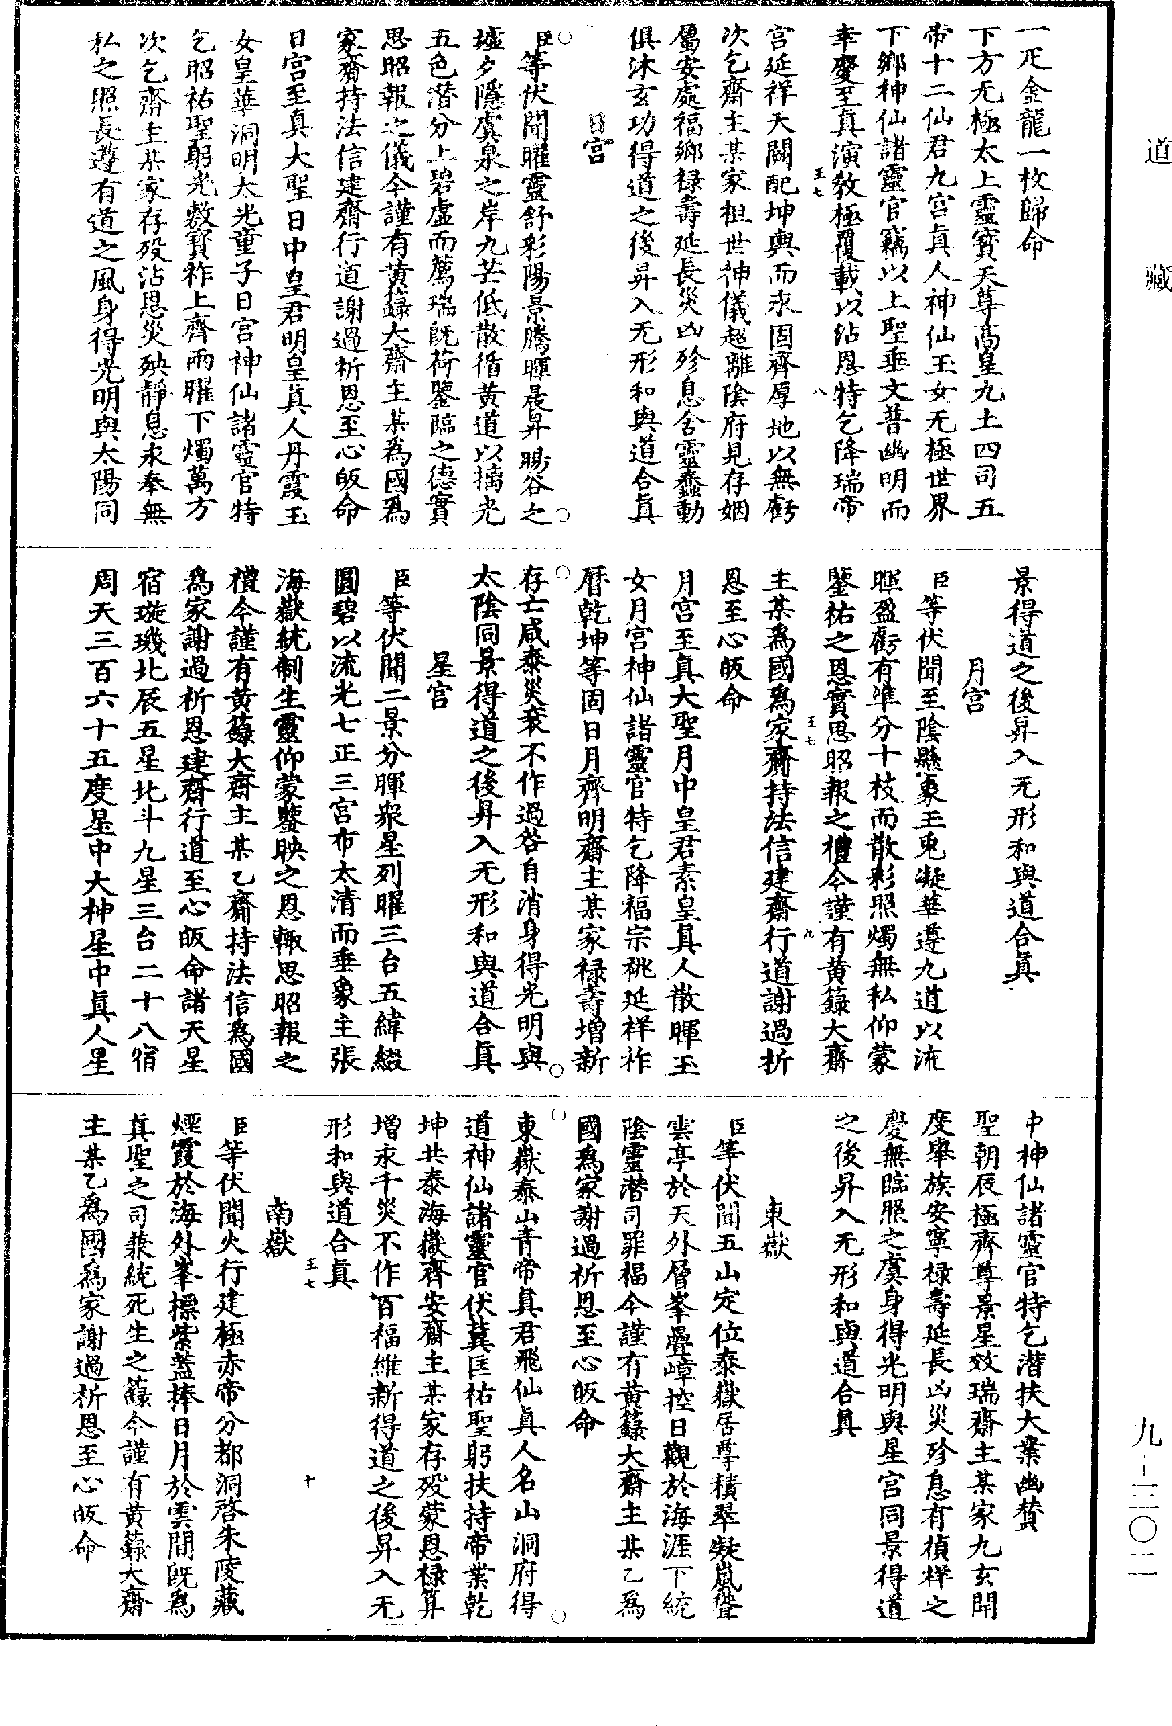 道藏
一疋金龍一枚歸命
下方无極太上靈寳天尊髙皇九土四司五
帝十二仙君九宫真人神仙玉女无極世界
下鄉神仙諸靈官竊以上聖垂文普幽明而
率慶至真演教極覆載以沾恩特乞降瑞帝
王七
八
宫延祥天闕配坤輿而永固齊厚地以無虧
次乞齋主某家祖世神儀超離陰府見存姻
屬安處福鄉禄壽延長災凶殄息含靈蠢動
俱沐玄功得道之後昇入无形和與道合真
日宫
臣等伏聞曜靈舒彩陽景騰暉晨昇暘谷之
墟夕隱虞泉之岸九芒低散循黄道以摛光
五色潜分上碧虚而薦瑞旣荷鑒臨之德實
思昭報之儀今謹有黄籙大齋主某為國為
家齋持法信建齋行道謝過祈恩至心皈命
日宫至真大聖日中皇君明皇真人丹霞玉
女皇華洞明大光童子日宫神仙諸靈官特
乞昭祐聖躬光敷寳祚上齊兩曜下燭萬方
次乞齋主某家存殁沾恩災殃靜息永奉無
私之照長遵有道之風身得光明與太陽同
景得道之後昇入无形和與道合真
月宫
臣等伏聞至陰縣象玉兎凝華遵九道以流
暉盈虧有準分十枝而散彩照燭無私仰蒙
鑒祐之恩實思昭報之禮今謹有黄籙大齋
王七
九
主某為國為家齋持法信建齋行道謝過祈
恩至心皈命
月宫至真大聖月中皇君素皇真人散暉玉
女月宫神仙諸靈官特乞降福宗祧延祥祚
曆乾坤等固日月齊明齋主某家禄壽增新
存亡咸泰災衰不作過咎自消身得光明與
太陰同景得道之後昇入无形和與道合真
星宫
臣等伏聞二景分暉衆星列曜三台五緯綴
圓碧以流光七正三宫布太清而垂象主張
海嶽統制生靈仰蒙鑒映之恩輙思昭報之
禮今謹有黄籙大齋主某乙齋持法信為國
為家謝過祈恩建齋行道至心皈命諸天星
宿璇璣北辰五星北斗九星三台二十八宿
周天三百六十五度星中大神星中真人星
中神仙諸靈官特乞潜扶大業幽賛
聖朝辰極齊尊景星效瑞齋主某家九玄開
度舉族安寧禄壽延長凶災殄息有禎祥之
慶無臨照之虞身得光明與星宫同景得道
之後昇入无形和與道合真
東嶽
臣等伏聞五山定位泰嶽居尊積翠凝嵐聳
雲亭於天外層峯疊嶂控日觀於海涯下統
陰靈潜司罪福今謹有黄籙大齋主某乙為
國為家謝過祈恩至心皈命
東嶽泰山青帝真君飛仙真人名山洞府得
道神仙諸靈官伏冀匡祐聖躬扶持帝業乾
坤共泰海嶽齊安齋主某家存殁蒙恩禄算
增永千災不作百福維新得道之後昇入无
形和與道合真
王七
十
南嶽
臣等伏聞火行建極赤帝分都洞啓朱陵藏
煙霞於海外峯標紫蓋捧日月於雲間旣為
真聖之司兼統死生之籙今謹有黄籙大齋
主某乙為國為家謝過祈恩至心皈命
九-三〇二